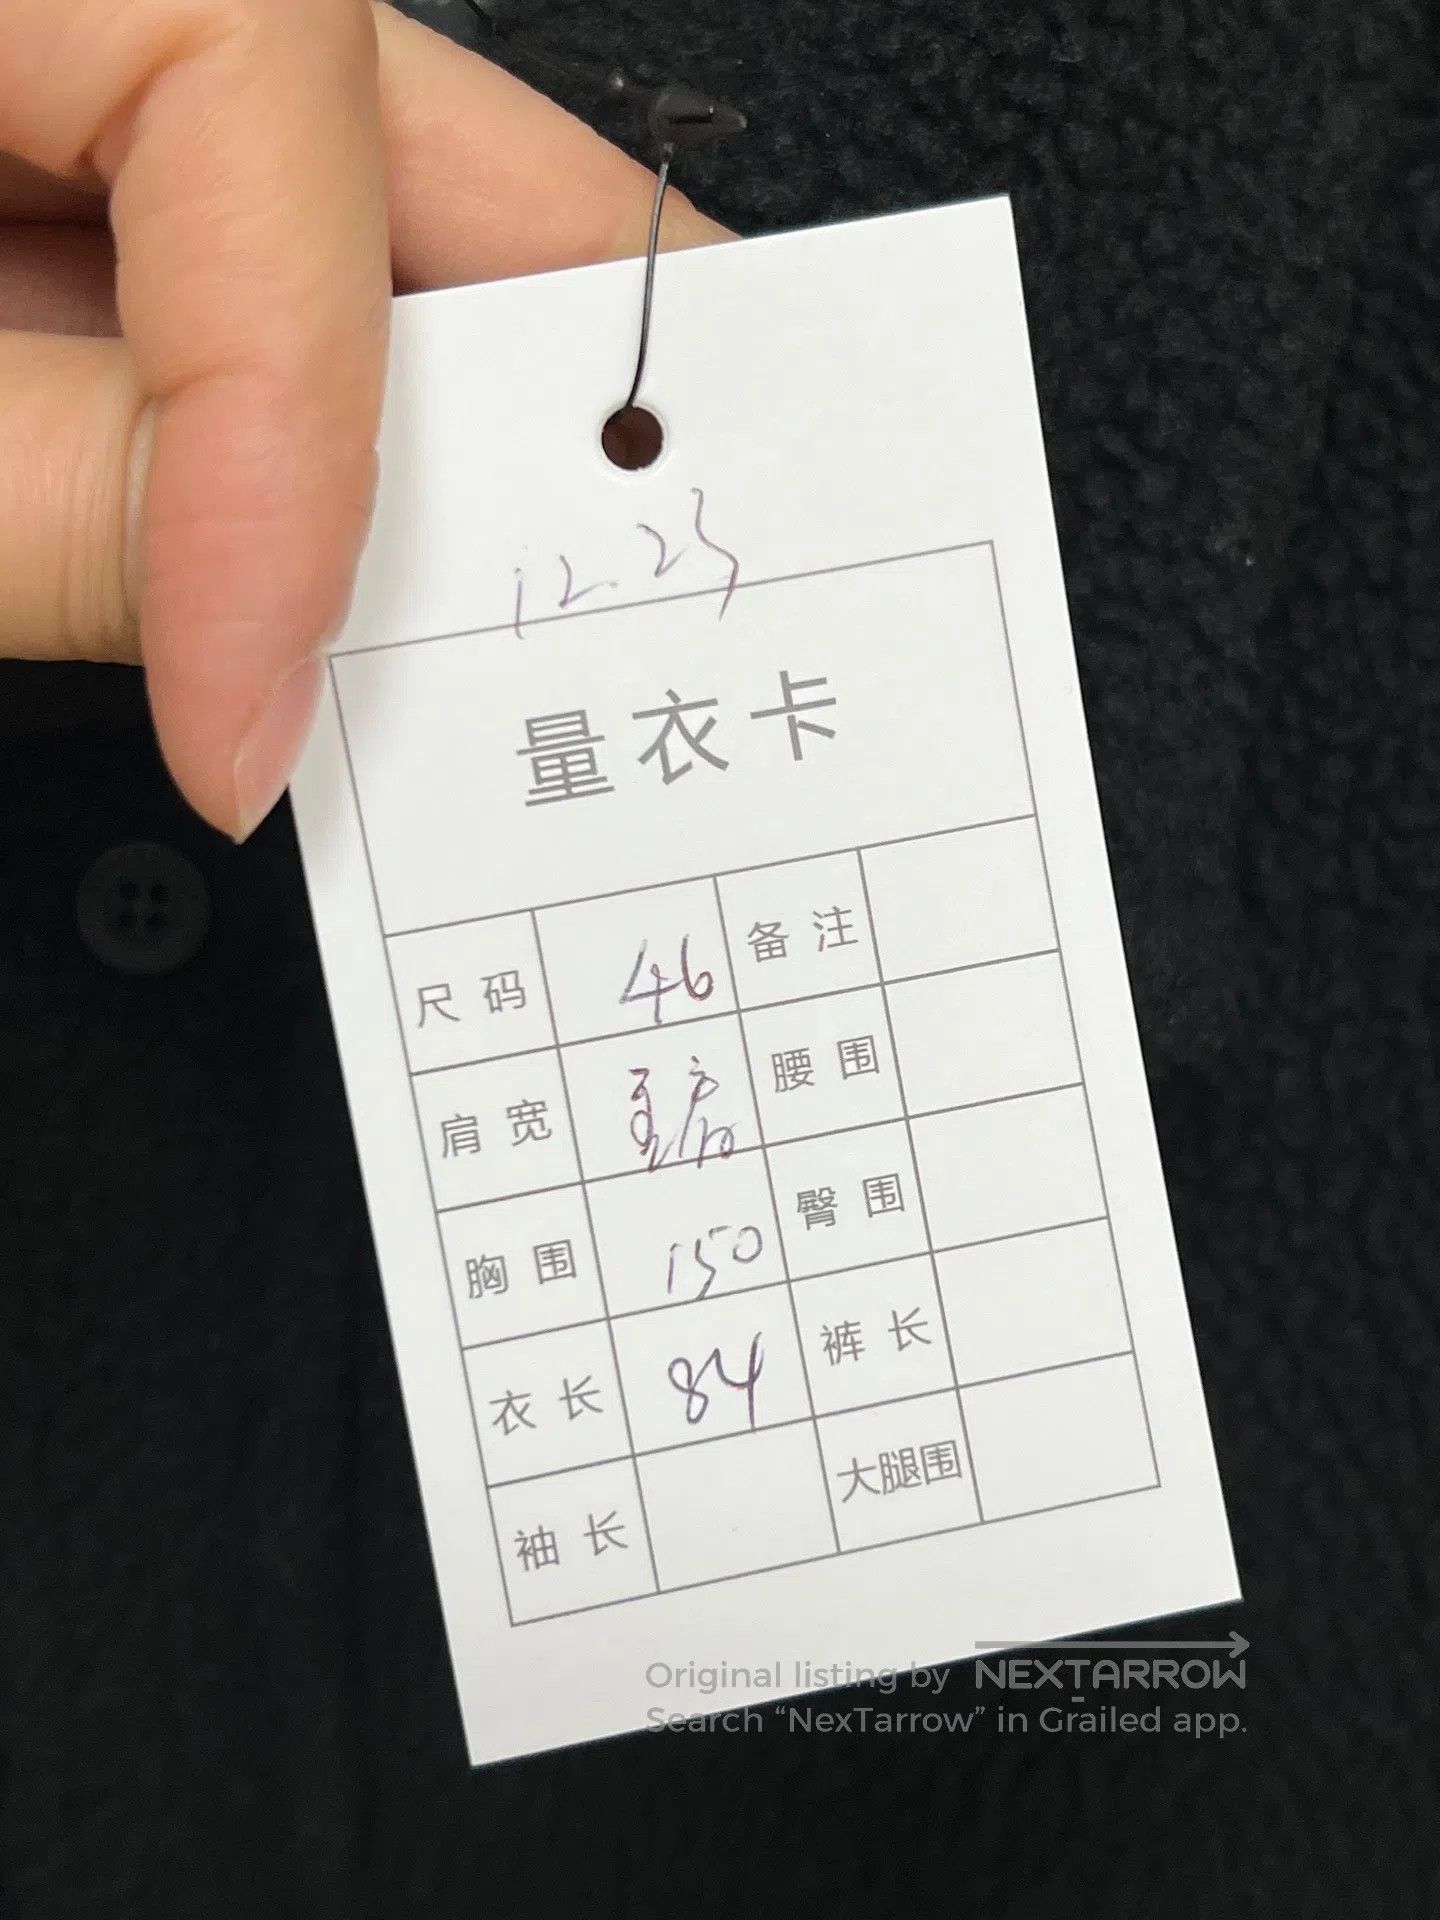 12.23
量衣卡
尺码 46 备注
肩宽 腰围
胸围 150 臀围
衣长 84 裤长
袖长 大腿围
Original listing by NEXTARROW
Search “NexTarrow” in Grailed app.